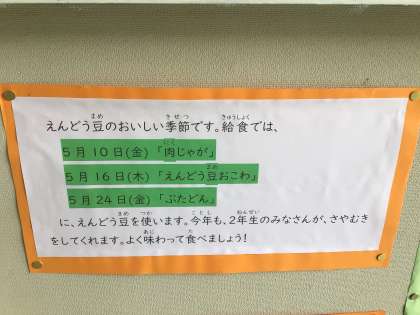 えんどう豆のおいしい季節です。給食では、
5月10日(金)「肉じゃが」
5月16日(木)「えんどう豆おこわ」
5月24日(金)「ぶたどん」
に、えんどう豆を使います。今年も、2年生のみなさんが、さやむき
をしてくれます。よく味わって食べましょう!